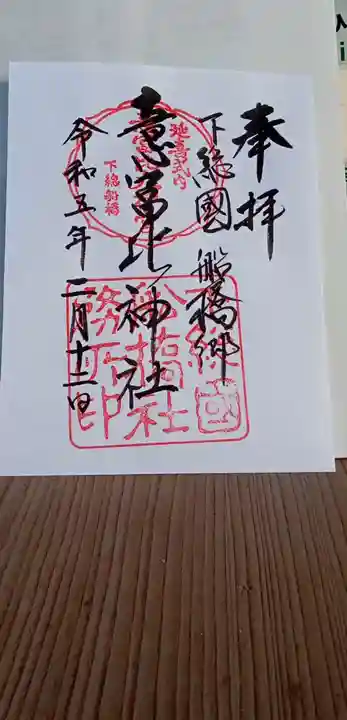 奉拝
下総國 船橋郷
意富比神社
令和五年二月十二日
延喜式内
下総船橋